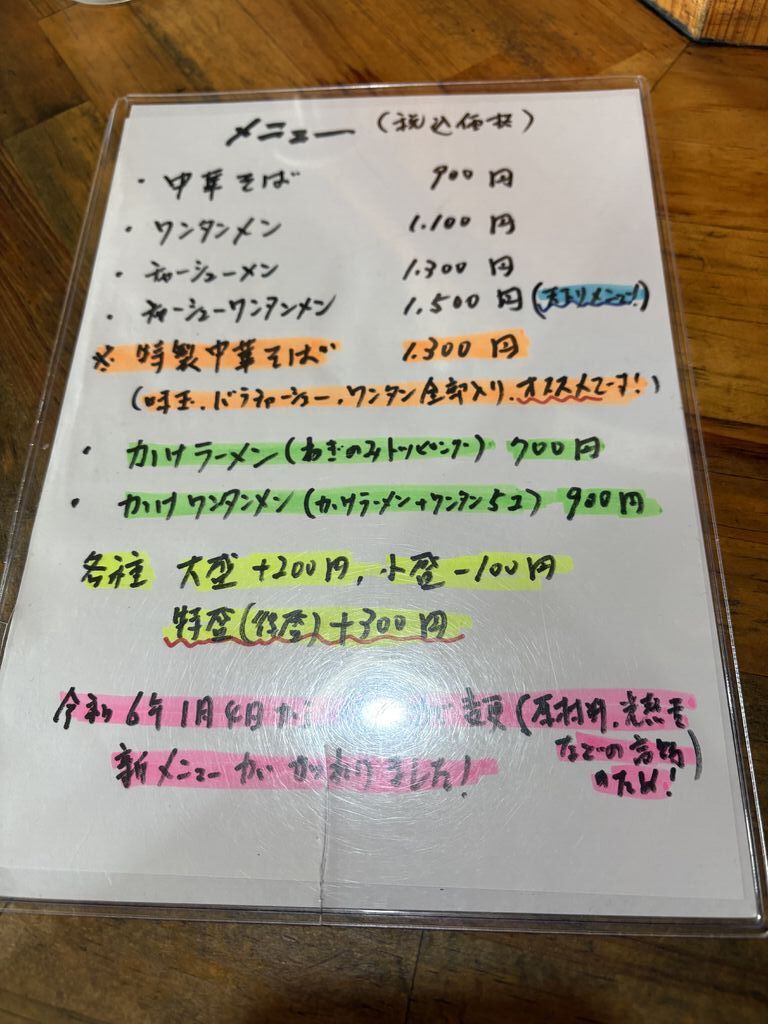 メニュー (税込価格)
・中華そば 900円
・ワンタンメン 1.100円
・チャーシューメン 1.300円
・チャーシューワンタンメン 1.500円(裏メニュー!)
※特製中華そば 1.300円
(味玉、バラチャーシュー、ワンタン全部入り、オススメでーす!)
・かけラーメン(ねぎのみトッピング) 700円
・かけワンタンメン(かけラーメン+ワンタン5コ) 900円
各種 大盛+200円、小盛-100円
特盛(倍盛)+300円
令和6年1月4日か 変更(原材料、光熱費
などの高騰
のため!)
新メニューがかわりました!